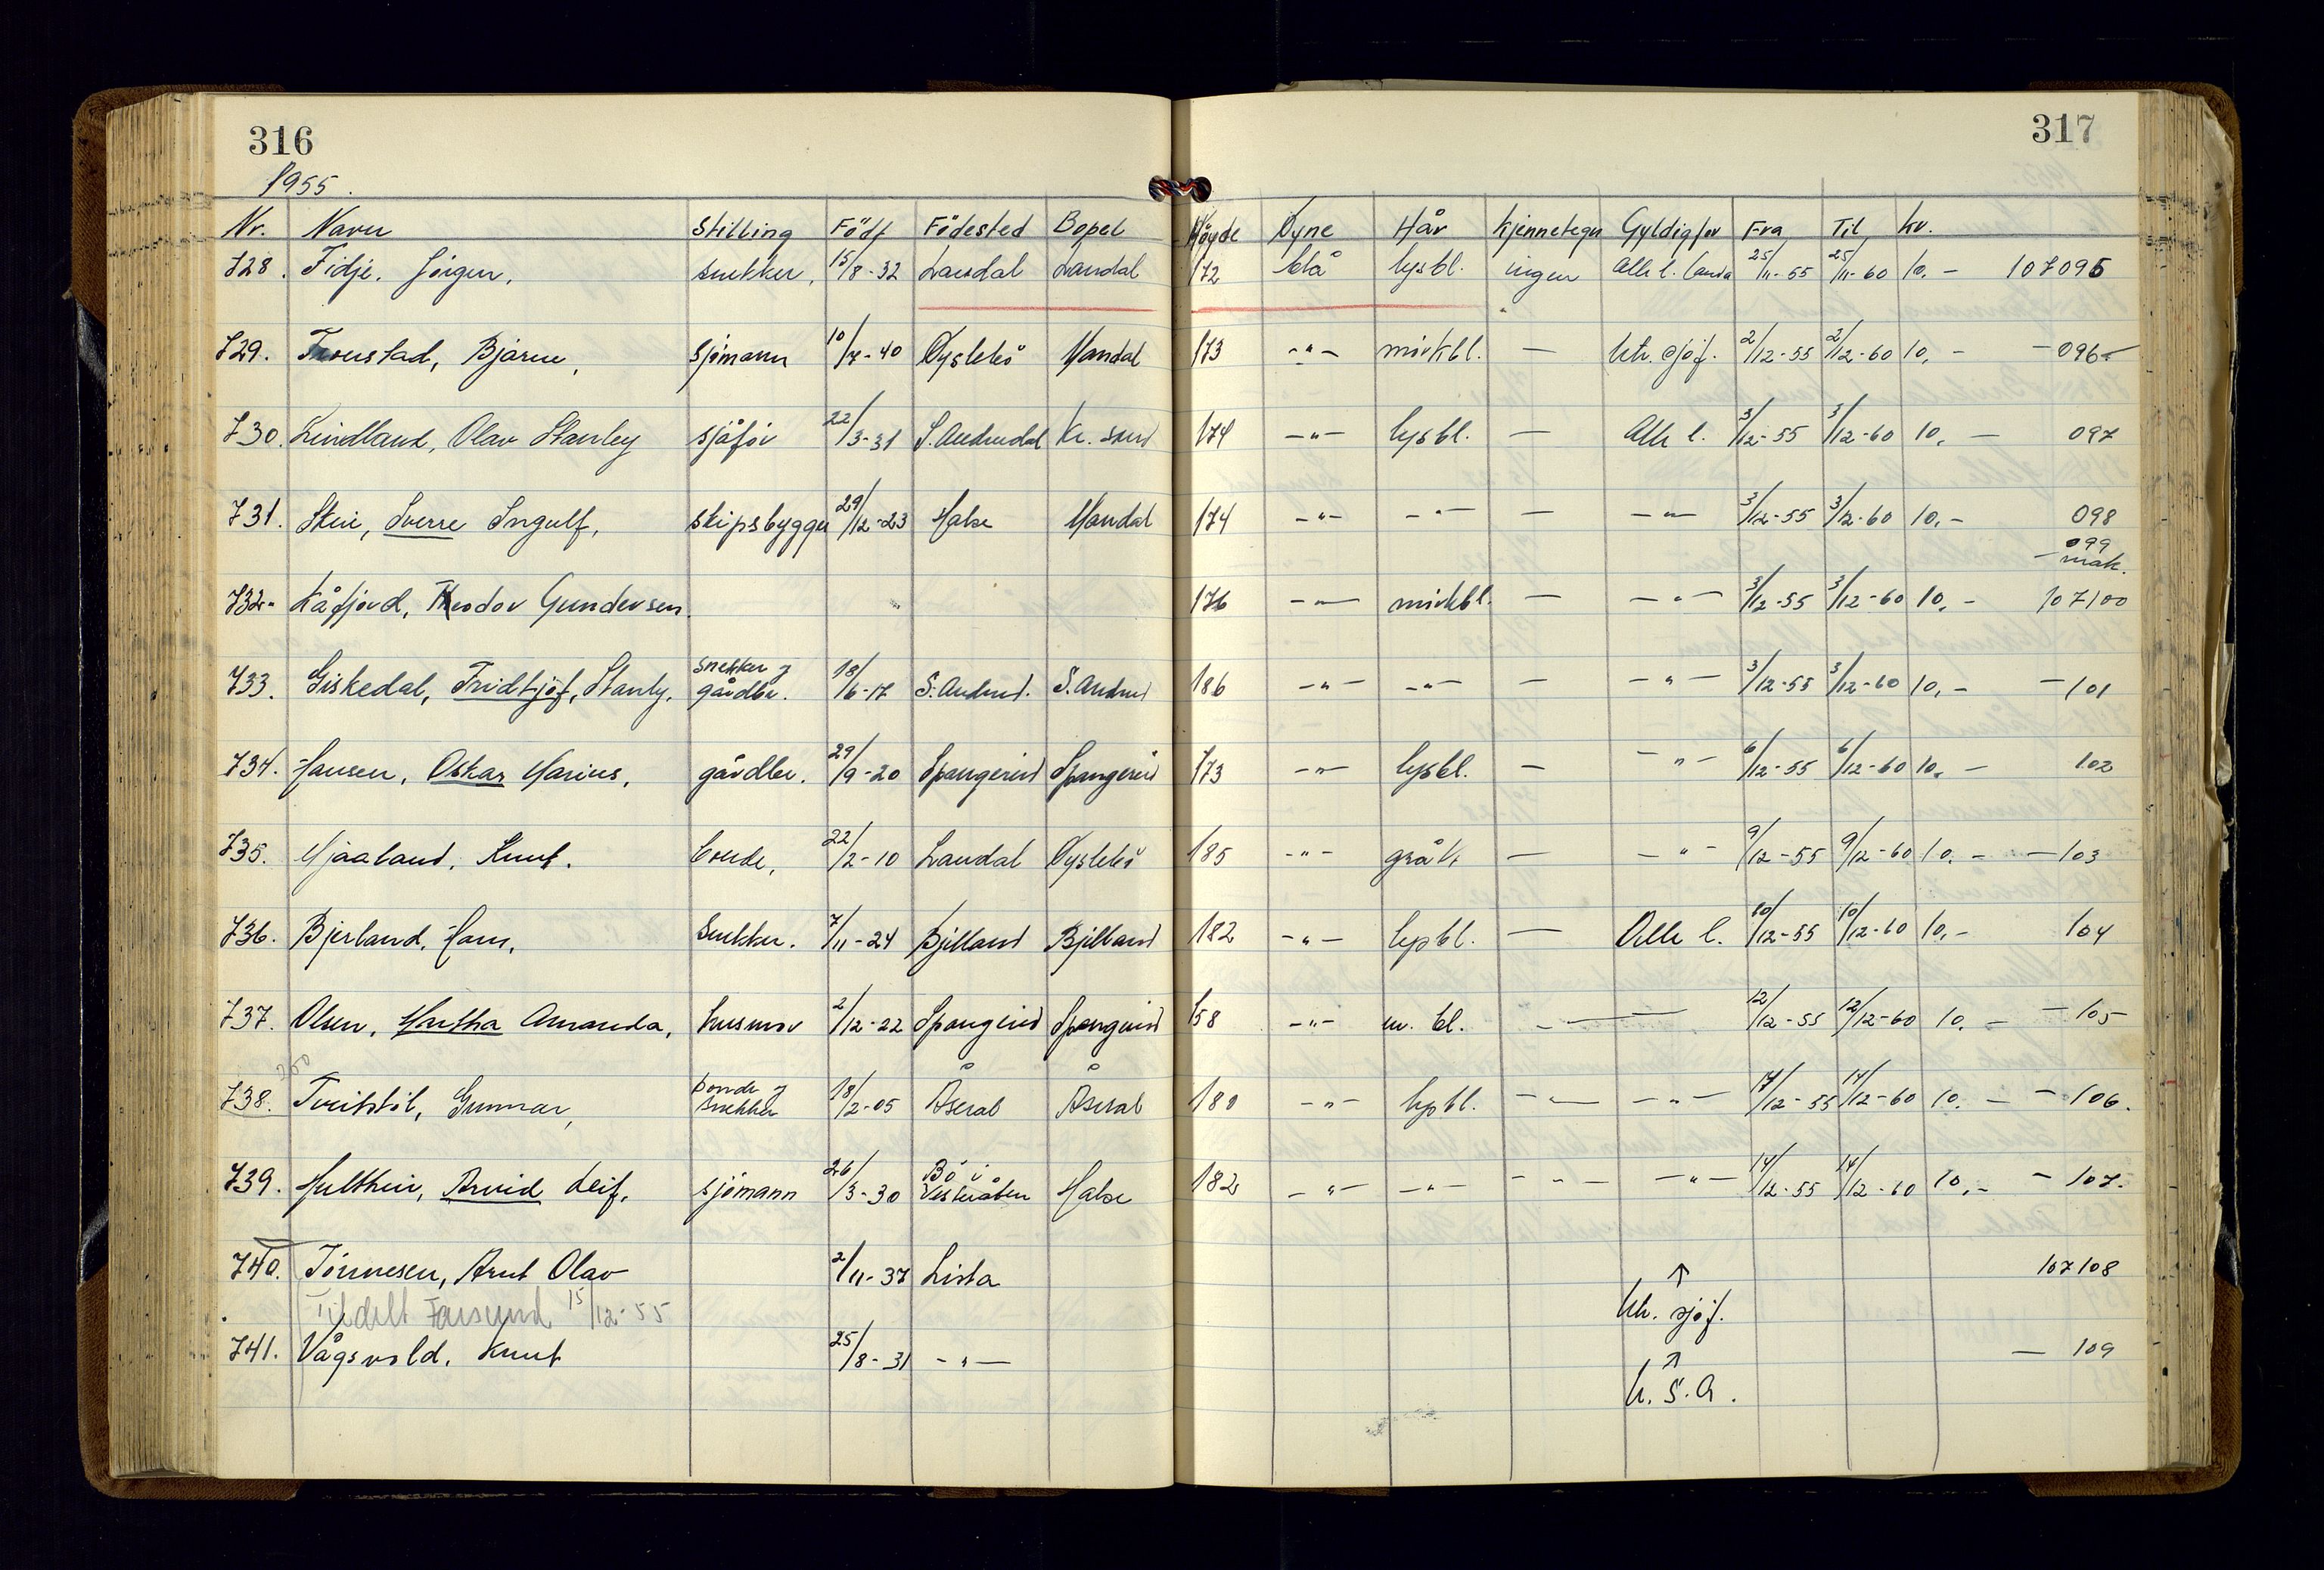 316
317
1955.
Nr. Navn Stilling Født Fødested Bopel Høyde Øyne Hår Kjennetegn Gyldig for Fra Til Kr.
728. Fidje, Jörgen, snekker, 15/8-32 Laudal Laudal 172 blå lysbl. ingen Alle l. landa 25/11-55 25/11-60 10,- 107095
729. Tronstad, Bjarne, sjømann 10/7-40 Øyslebö Mandal 173 -"- mörkbl. — utr. sjöf. 2/12-55 2/12-60 10,- - 096-
730. Lindland, Olav Stanley sjåför 22/3-31 S. Audnedal Kr. sand 174 -"- lysbl. — Alle l. 3/12-55 3/12-60 10,- 097
731. Stein, Sverre Ingulf, skipsbygger 29/12-23 Halse Mandal 174 -"- -"- — -"- 3/12-55 3/12-60 10,- 098
099
- mak.
732. Kåfjord, Theodor Gundersen. 176 -"- mörkbl. — -"- 3/12-55 3/12-60 10,- 107100
733. Giskedal, Fridtjöf, Stanly, snekker og gårdbr. 18/6-17 S. Audned. S. Audned 186 -"- -"- — -"- 3/12-55 3/12-60 10,- - 101
734. Hansen, Oskar Marius, gårdbr. 29/9-20 Spangereid Spangereid 173 -"- lysbl. — -"- 6/12-55 6/12-60 10,- 102
735. Mjaaland, Knut. bonde, 22/2-10 Laudal Øyslebö 185 -"- grått — -"- 9/12-55 9/12-60 10,- - 103
736. Bjerland, Hans, Snekker. 7/11-24 Bjelland Bjelland 182 -"- lysbl. — Alle l. 10/12-55 10/12-60 10,- 104
737. Olsen, Martha Amanda, husmor 2/12-22 Spangereid Spangereid 158 -"- m. bl. - — 12/12-55 12/12-60 10,- - 105
250
738. Tveitstöl, Gunnar, bonde og snekker 18/2-05 Åseral Åseral 180 -"- lysbl. -"- -"- 14/12-55 14/12-60 10,- - 106.
739. Hulthein, Arvid Leif, sjömann 26/3-30 Bö i Vesterålen Halse 182 -"- -"- -"- -"- 14/12-55 14/12-60 10,- - 107.
740. Tönnesen, Arnt Olav 2/11-37 Lista ↑ 107108
Tildelt Farsund 15/12-55 utr. sjöf.
741. Vågsvold, Knut 25/8-31 -"- ↑ - 109
U.S.A.